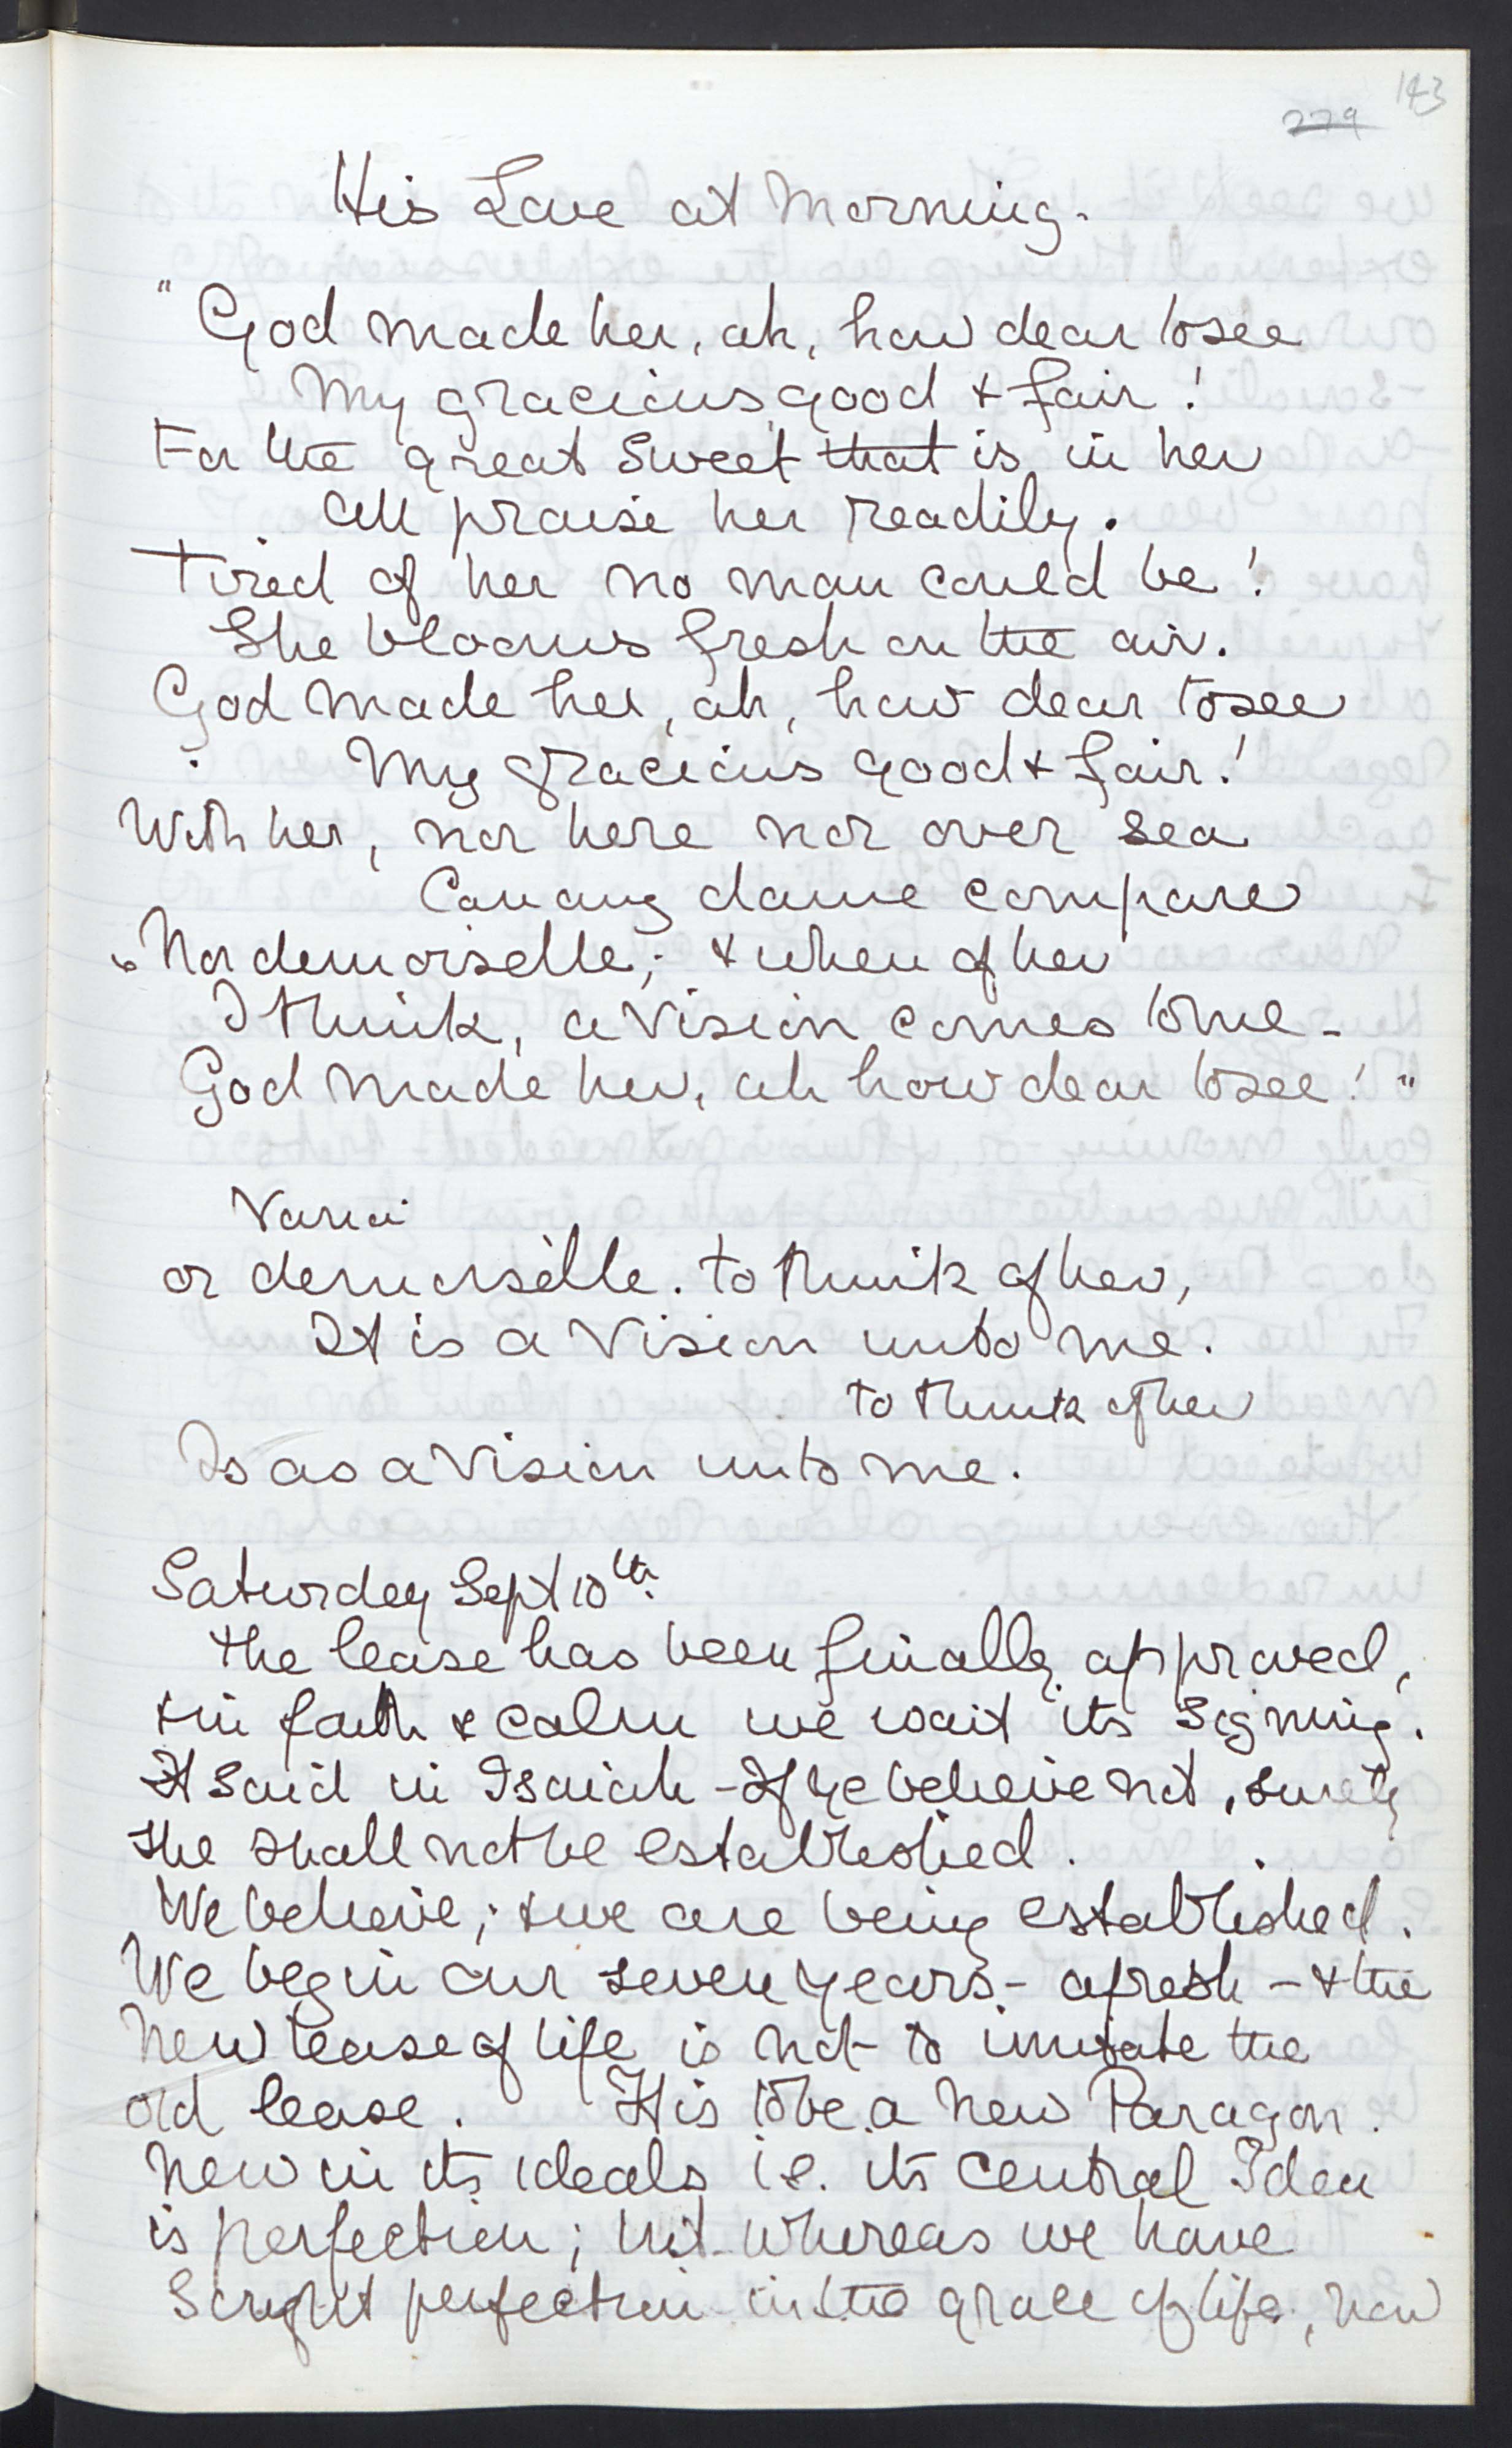 143
229
His Love at Morning.
"God made her, ah, how dear to see
My gracious, good & fair!
For the great Sweet that is in her
All praise her readily.
Tired of her no man could be!
She blooms fresh on the air.
God made her, ah, how dear to see
My gracious good & fair!
With her, nor here nor over sea
Can any dame compare
Nor demoiselle; & when of her
I think, a vision comes to me –
God made her, ah how dear to see!"
Varia
or demoiselle. to think of her,
It is a Vision unto me.
to think of her
Is as a Vision unto me.
Saturday Sept 10th.
The lease has been finally approved,
& in faith & calm we wait its signing.
It said in Isaiah – If ye believe not, surely
she shall not be established.
We believe; & we are being established.
We begin our seven years – afresh – & the
New lease of life is not to imitate the
old lease. It is to be a new Paragon.
New in its ideals i.e. its central Idea
is perfection; but whereas we have
Sought perfection in the grace of life, now